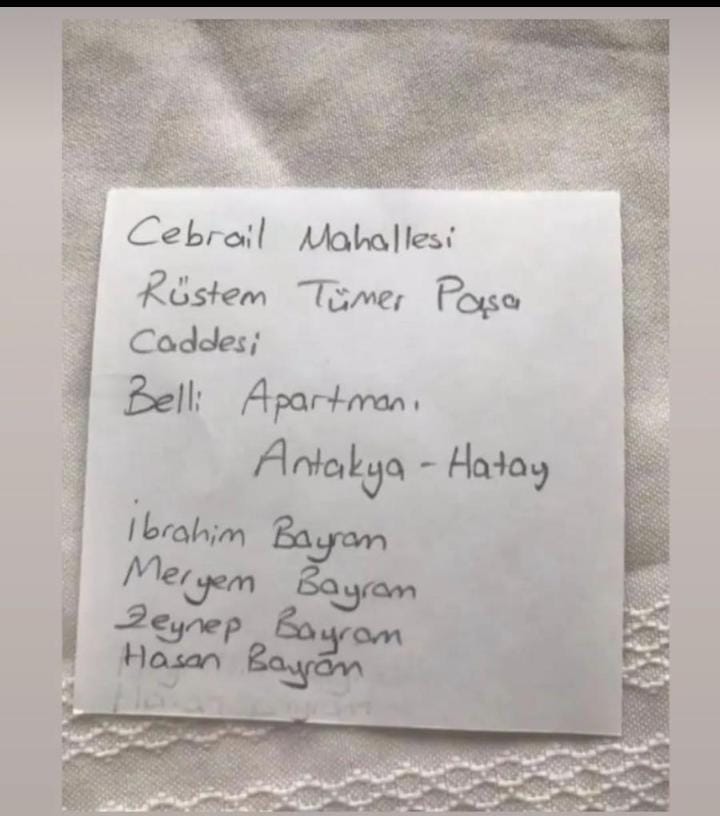 Cebrail Mahallesi
Rüstem Tümer Paşa
Caddesi
Belli Apartmanı
Antakya - Hatay
İbrahim Bayram
Meryem Bayram
Zeynep Bayram
Hasan Bayram